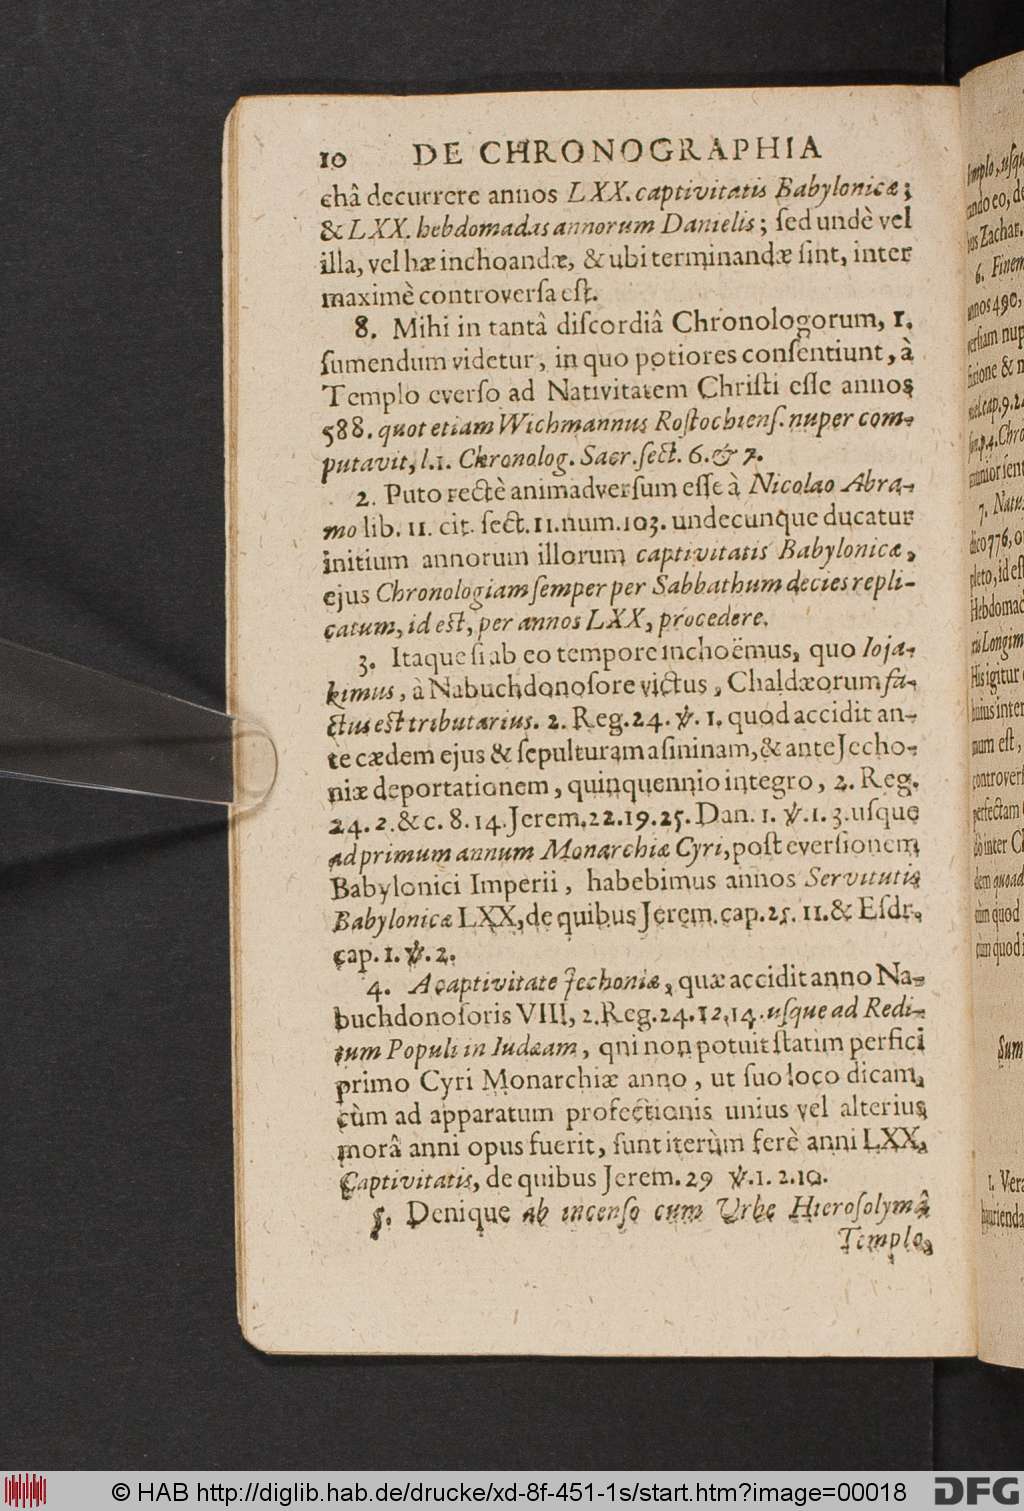 10 DE CHRONOGRAPHIA
châ decurrere annos LXX. captivitatis Babylonicæ;
& LXX. hebdomadas annorum Danielis; sed undè vel
illa, vel hæ inchoandæ, & ubi terminandæ sint, inter
maximè controversa est.
8. Mihi in tantâ discordiâ Chronologorum, 1.
sumendum videtur, in quo potiores consentiunt, à
Templo everso ad Nativitatem Christi esse annos
588. quot etiam Wichmannus Rostochiens. nuper com-
putavit, l.1. Chronolog. Sacr. sect. 6. & 7.
2. Puto rectè animadversum esse à Nicolao Abra-
mo lib. 11. cit. sect. 11. num. 103. undecunque ducatur
initium annorum illorum captivitatis Babylonicæ,
ejus Chronologiam semper per Sabbathum decies repli-
catum, id est, per annos LXX, procedere.
3. Itaque si ab eo tempore inchoëmus, quo Ioja-
kimus, à Nabuchdonosore victus, Chaldæorum fa-
ctus est tributarius. 2. Reg. 24. ℣. 1. quod accidit an-
tè cædem ejus & sepulturam asininam, & ante Jecho-
niæ deportationem, quinquennio integro, 2. Reg.
24. 2. & c. 8. 14. Jerem. 22. 19. 25. Dan. 1. ℣. 1. 3. usque
ad primum annum Monarchiæ Cyri, post eversionem
Babylonici Imperii, habebimus annos Servitutis
Babylonicæ LXX, de quibus Jerem. cap. 25. 11. & Esdr.
cap. 1. ℣. 2.
4. A captivitate Jechoniæ, quæ accidit anno Na-
buchdonosoris VIII, 2. Reg. 24. 12, 14. usque ad Redi-
tum Populi in Iudæam, qni non potuit statim perfici
primo Cyri Monarchiæ anno, ut suo loco dicam,
cùm ad apparatum profectionis unius vel alterius
morâ anni opus fuerit, sunt iterùm ferè anni LXX,
Captivitatis, de quibus Jerem. 29 ℣. 1. 2. 10.
5. Denique ab incenso cum Urbe Hierosolymâ
Templo,
© HAB http://diglib.hab.de/drucke/xd-8f-451-1s/start.htm?image=00018
DFG